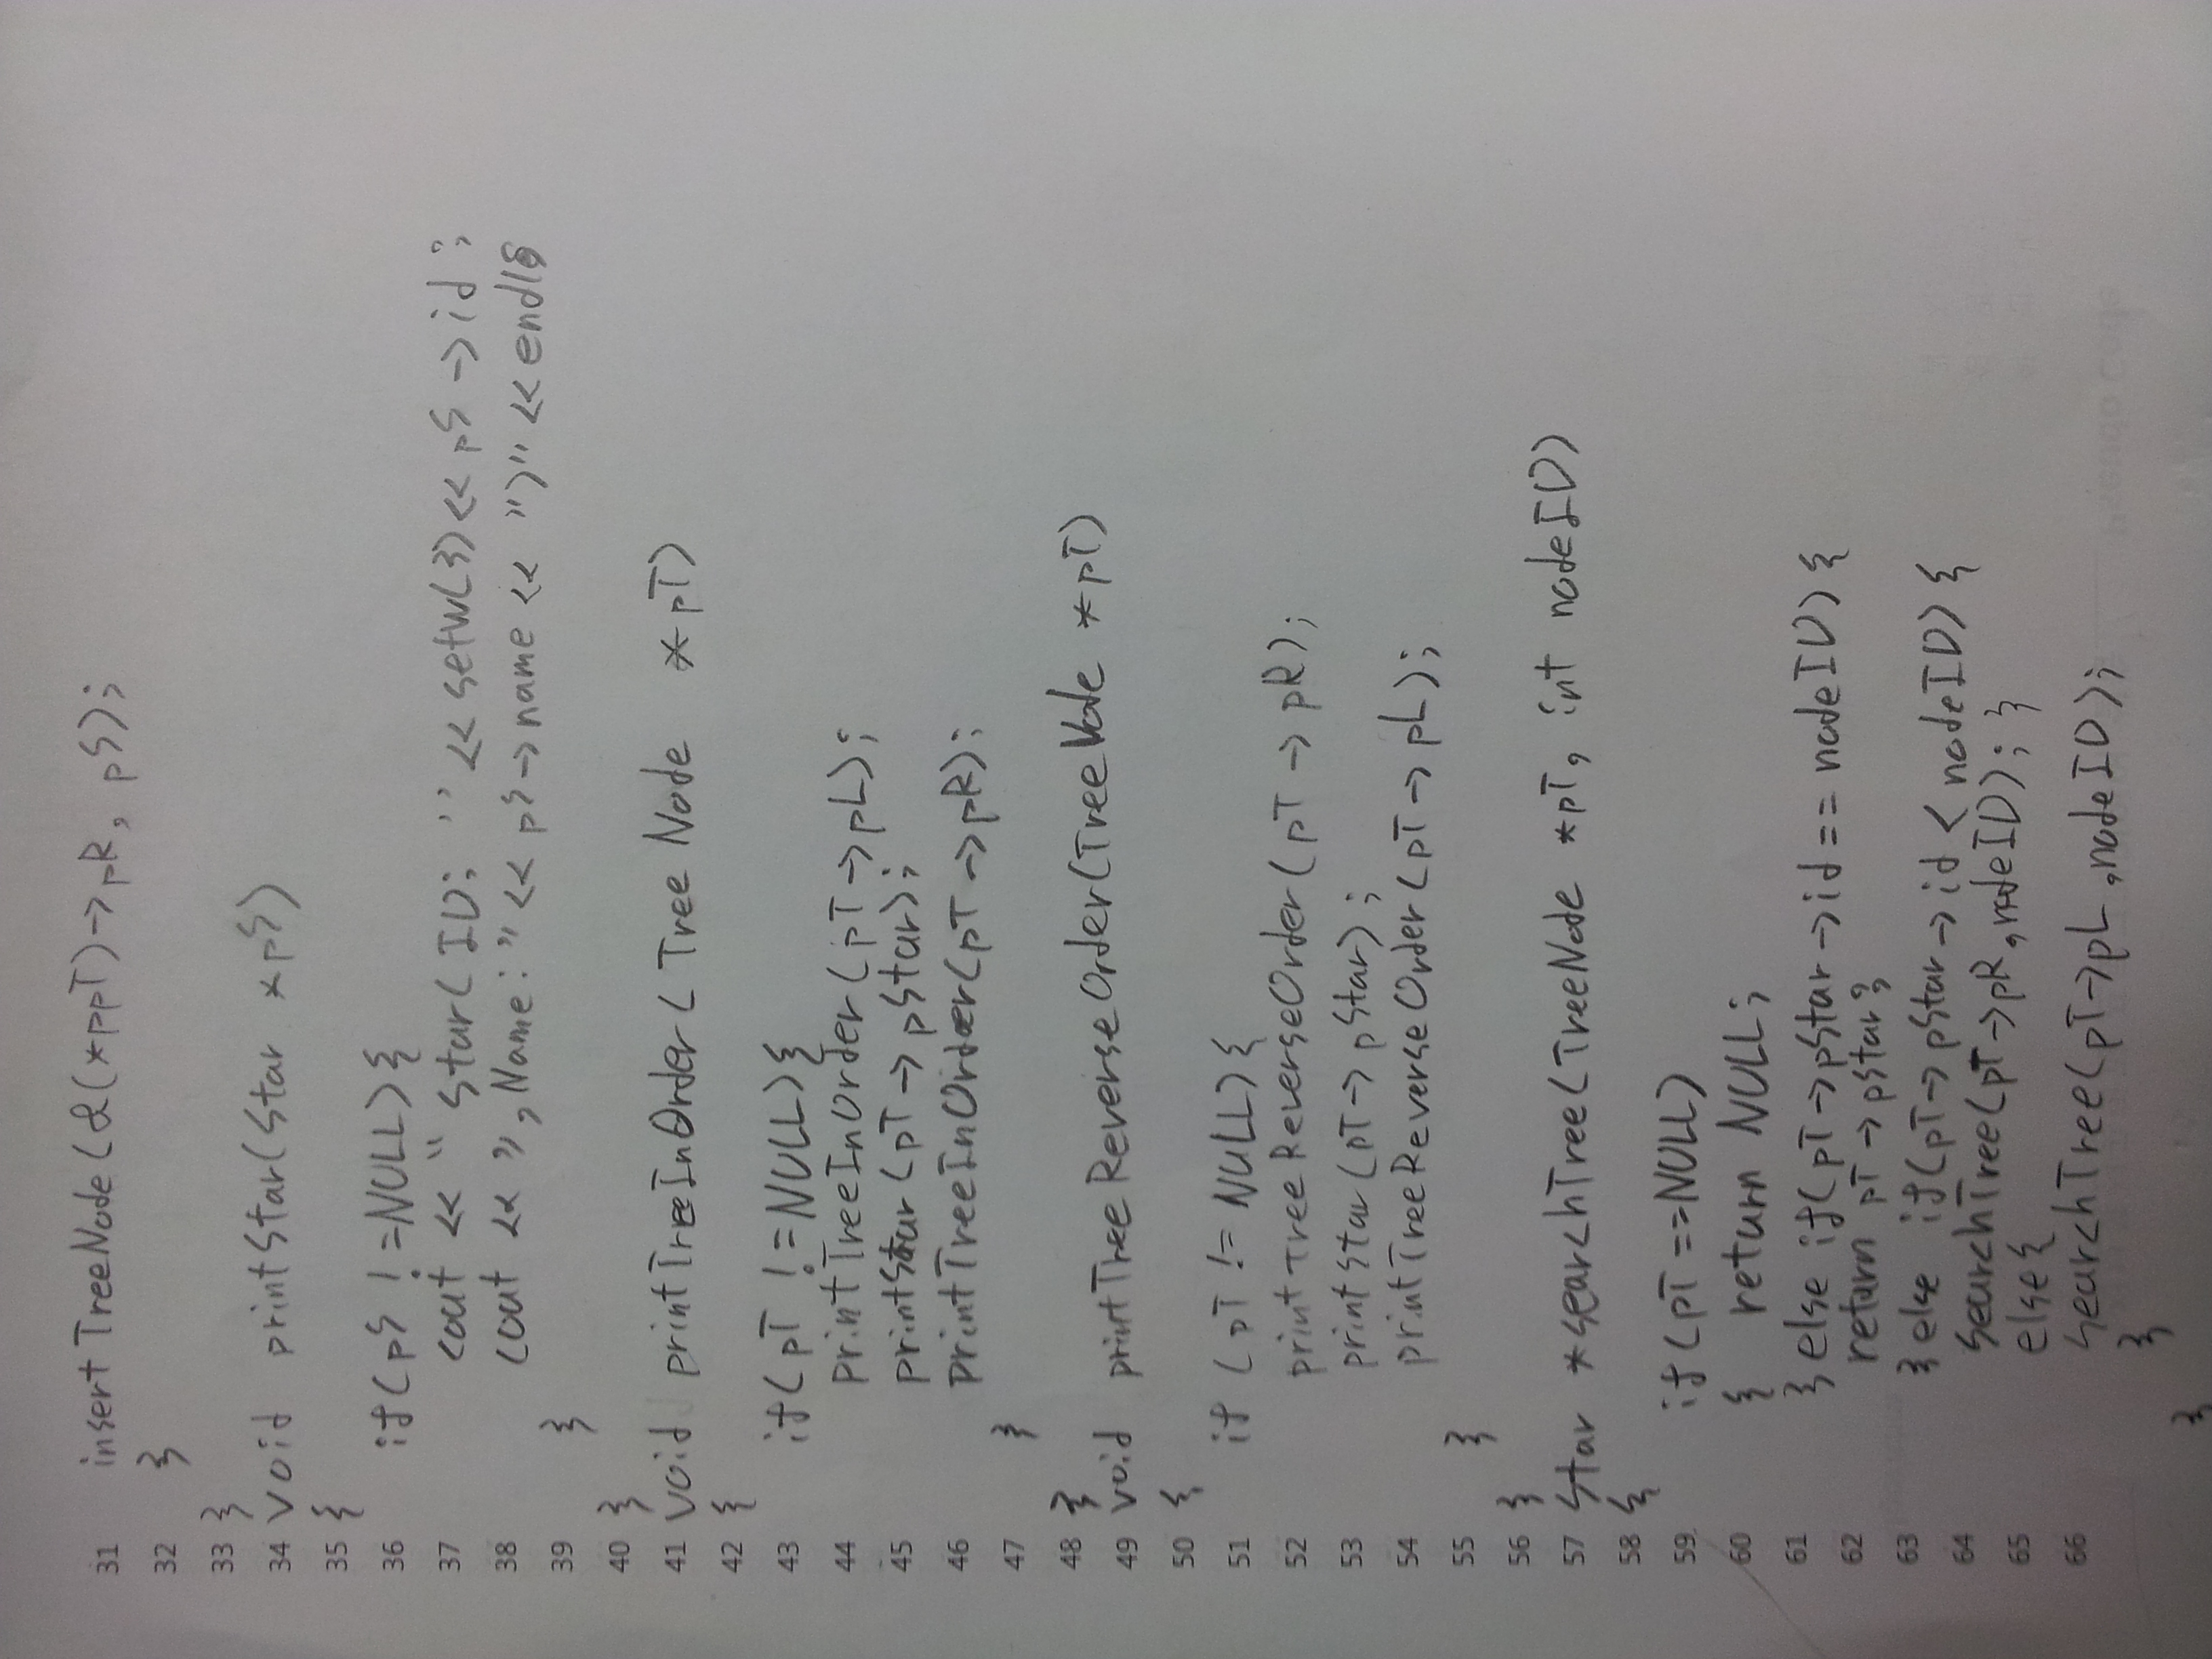 31 insertTreeNode(&(*ppT)->pR, pS);
32 }
33 }
34 void printStar(Star *pS)
35 {
36 if(pS !=NULL){
37 cout << " Star(ID: " << setw(3)<< pS ->id;
38 cout << ", Name:"<< pS->name<< ")"<<endl;
39 }
40 }
41 void printTreeInOrder(TreeNode *pT)
42 {
43 if(pT !=NULL){
44 printTreeInOrder(pT->pL);
45 printStar(pT->pStar);
46 printTreeInOrder(pT->pR);
47 }
48 }
49 void printTreeReverseOrder(TreeNode *pT)
50 {
51 if (pT != NULL){
52 printTreeReverseOrder(pT->pR);
53 printStar(pT->pStar);
54 printTreeReverseOrder(pT->pL);
55 }
56 }
57 Star *searchTree(TreeNode *pT, int nodeID)
58 {
59 if(pT ==NULL)
60 { return NULL;
61 } else if(pT->pStar->id==nodeID){
62 return pT->pStar;
63 } else if(pT->pStar->id< nodeID){
64 searchTree(pT->pR,nodeID); }
65 else{
66 searchTree(pT->pL,nodeID);
}
}